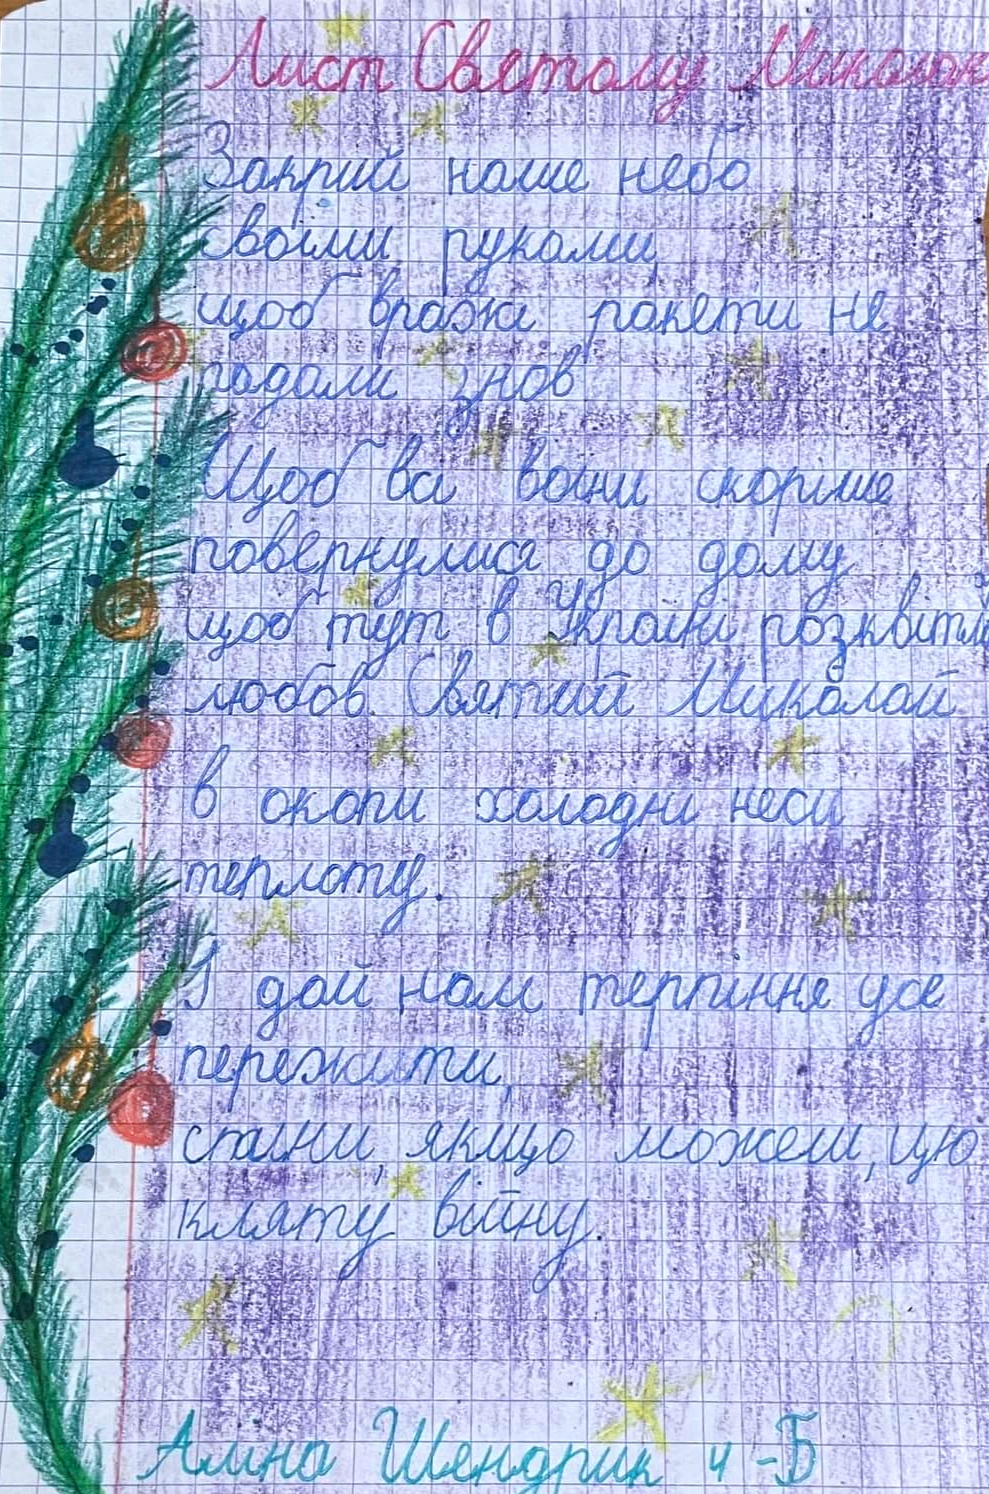 Лист Святому Миколаю
Закрий наше небо
своїми руками,
щоб вражі ракети не
падали знов
Щоб всі воїни скоріше
повернулися до дому
щоб тут в Україні розквітла
любов. Святий Миколай
в окопи холодні неси
теплоту.
І дай нам терпіння усе
пережити,
спини, якщо можеш, цю
кляту війну.
Аліна Шендрик 4-Б